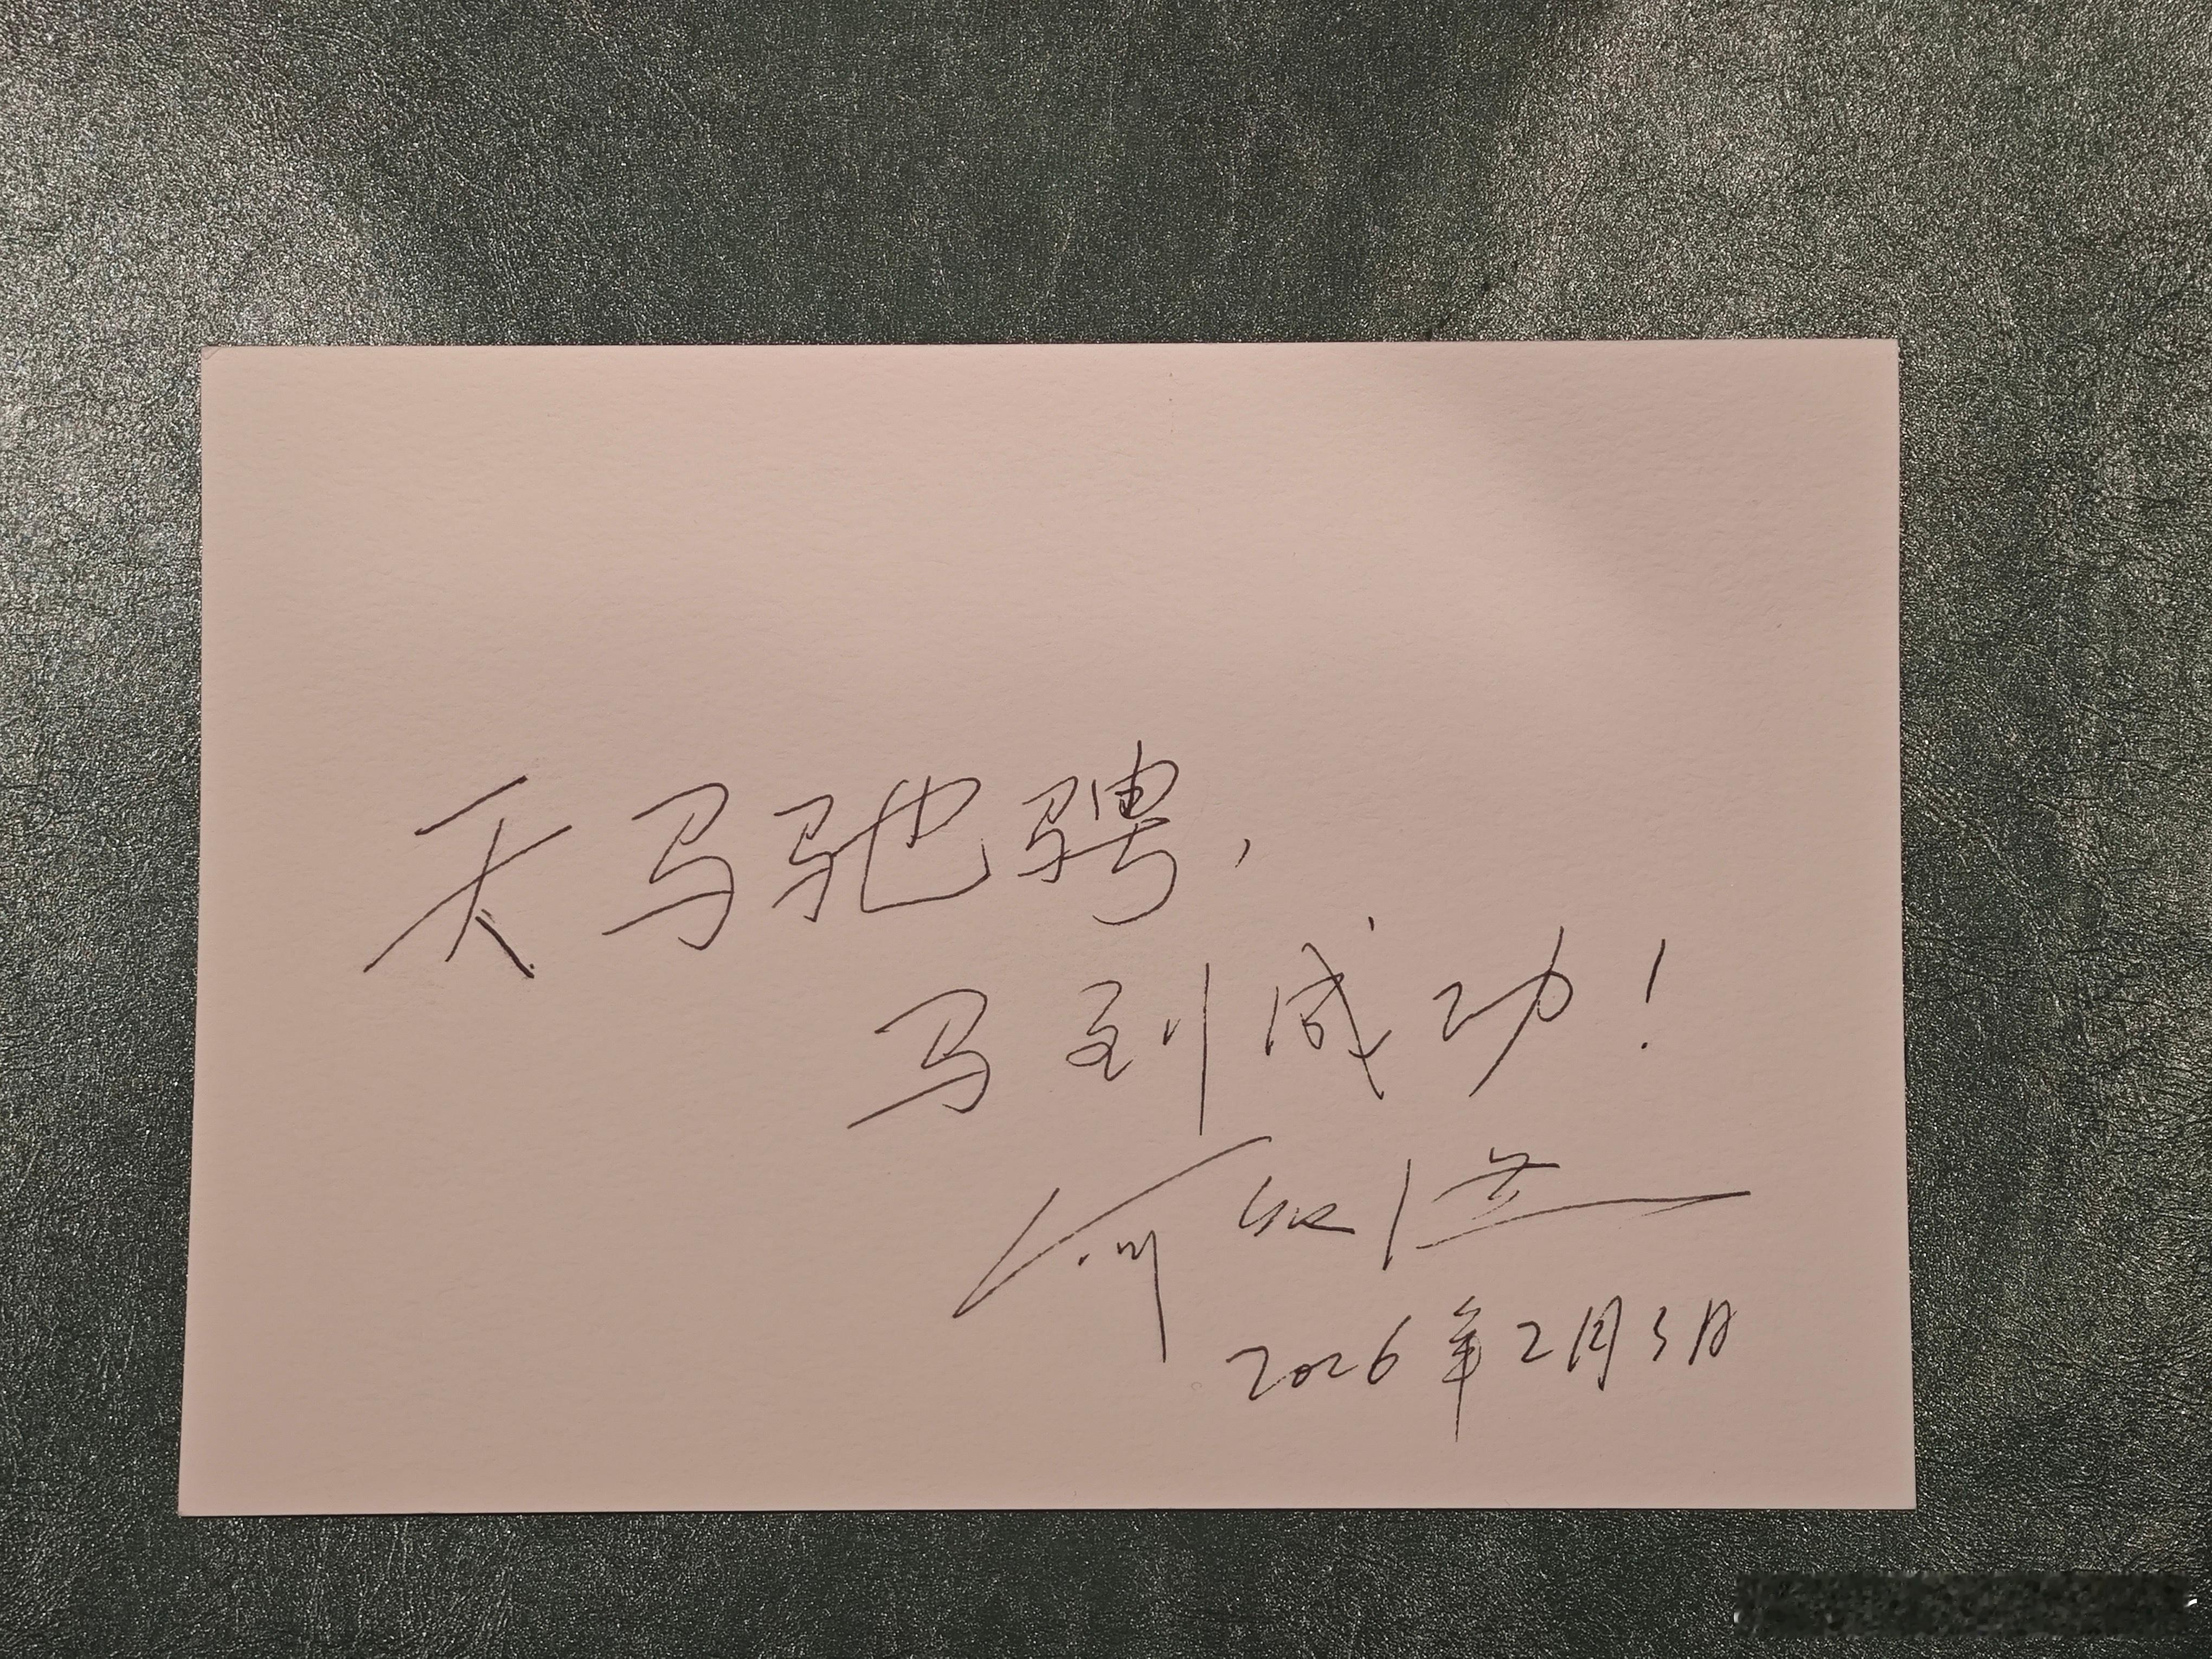 天马驰骋,
马到成功!
何
2026年2月3日